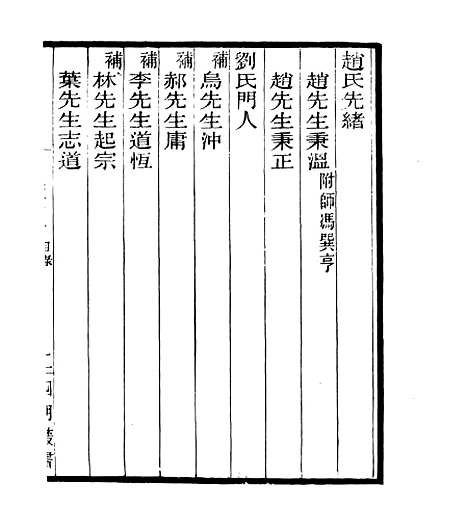 趙氏先緒
趙先生秉溫 附師馮巽亨
趙先生秉正
劉氏門人
補烏先生沖
補郝先生庸
補李先生道恆
補林先生起宗
葉先生志道
四明叢書